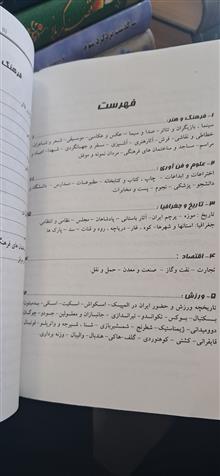 فهرست
۱- فرهنگ و هنر:
سینما، بازیگران و تئاتر- صدا و سیما - عکس و عکاسی- موسیقی- شعر و شاعران-
خطاطی و نقاشی- فرش- آثار هنری - آشپزی - سفر و جهانگردی - شهدا- اعیاد و
مراسم- مساجد و ساختمان های فرهنگی- مردان نمونه و موفق
۲- علوم و فن آوری :
اختراعات و ابداعات - چاپ ، کتاب و کتابخانه - مطبوعات- مدارس - دانشگاه و
دانشجو - پزشکی - نجوم - پست و مخابرات
۳- تاریخ و جغرافیا :
تاریخ - موزه - پرچم ایران- آثار باستانی - پادشاهان - مجلس - نظامی و انتظامی
جغرافیا: استانها و شهرها- کوه ، غار- دریاچه ، رود و قنات - سد - پارک ها
۴- اقتصاد :
تجارت - نفت وگاز - صنعت و معدن - حمل و نقل
۵- ورزش :
تاریخچه ورزش و حضور ایران در المپیک - اسکواش - اسکیت - اسکی- بدمینتون
بسکتبال - بوکس - تکواندو - تیراندازی - جانبازان و معلولین - جودو- چوگان
دوومیدانی - ژیمناستیک - شطرنج - شمشیربازی - شنا ، شیرجه و واترپلو- فوتبال
قایقرانی - کشتی - کوهنوردی - گلف-هاکی - هندبال - والیبال - وزنه برداری.
فرهنگ